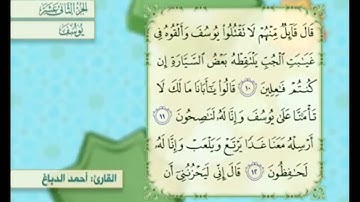 الجزء الثاني عشر
يوسف
قَالَ قَآئِلٌ مِّنْهُمْ لَا تَقْتُلُوا۟ يُوسُفَ وَأَلْقُوهُ فِى
غَيَـٰبَتِ ٱلْجُبِّ يَلْتَقِطْهُ بَعْضُ ٱلسَّيَّارَةِ إِن
كُنتُمْ فَـٰعِلِينَ ١٠ قَالُوا۟ يَـٰٓأَبَانَا مَا لَكَ لَا
تَأْمَ۫نَّا عَلَىٰ يُوسُفَ وَإِنَّا لَهُۥ لَنَـٰصِحُونَ ١١
أَرْسِلْهُ مَعَنَا غَدًا يَرْتَعْ وَيَلْعَبْ وَإِنَّا لَهُۥ
لَحَـٰفِظُونَ ١٢ قَالَ إِنِّى لَيَحْزُنُنِىٓ أَن
القارئ: أحمد الدباغ